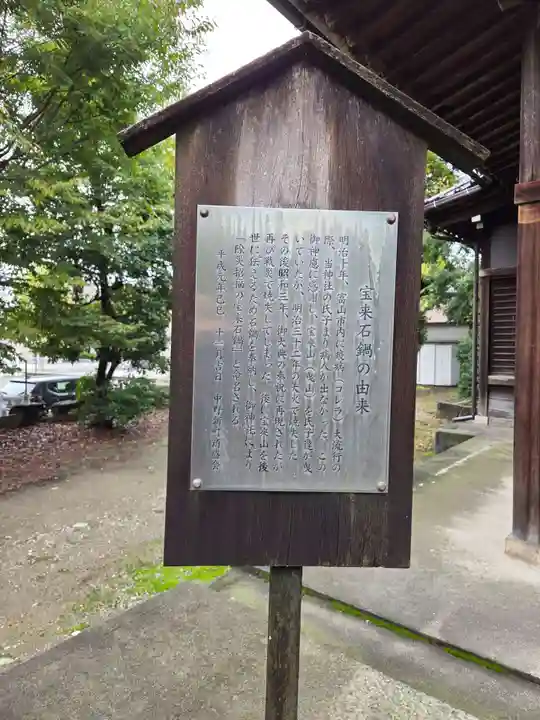 宝来石鍋の由来
明治十年、富山市内に疫病（コレラ）大流行の
際、当神社の氏子より病人が出なかった。この
御神慮に感謝し、宝来山（曳山）を氏子達が曳
いていたが、明治三十二年の大火で焼失した。
その後昭和三年、御大典の奉祝に再現されたが
再び戦災で焼失してしまった。後に宝来山を後
世に伝えるため石鍋を奉納し、御神託により
「除災招福の宝来石鍋」と命名される。
平成元年己巳 十一月吉日 中野新町